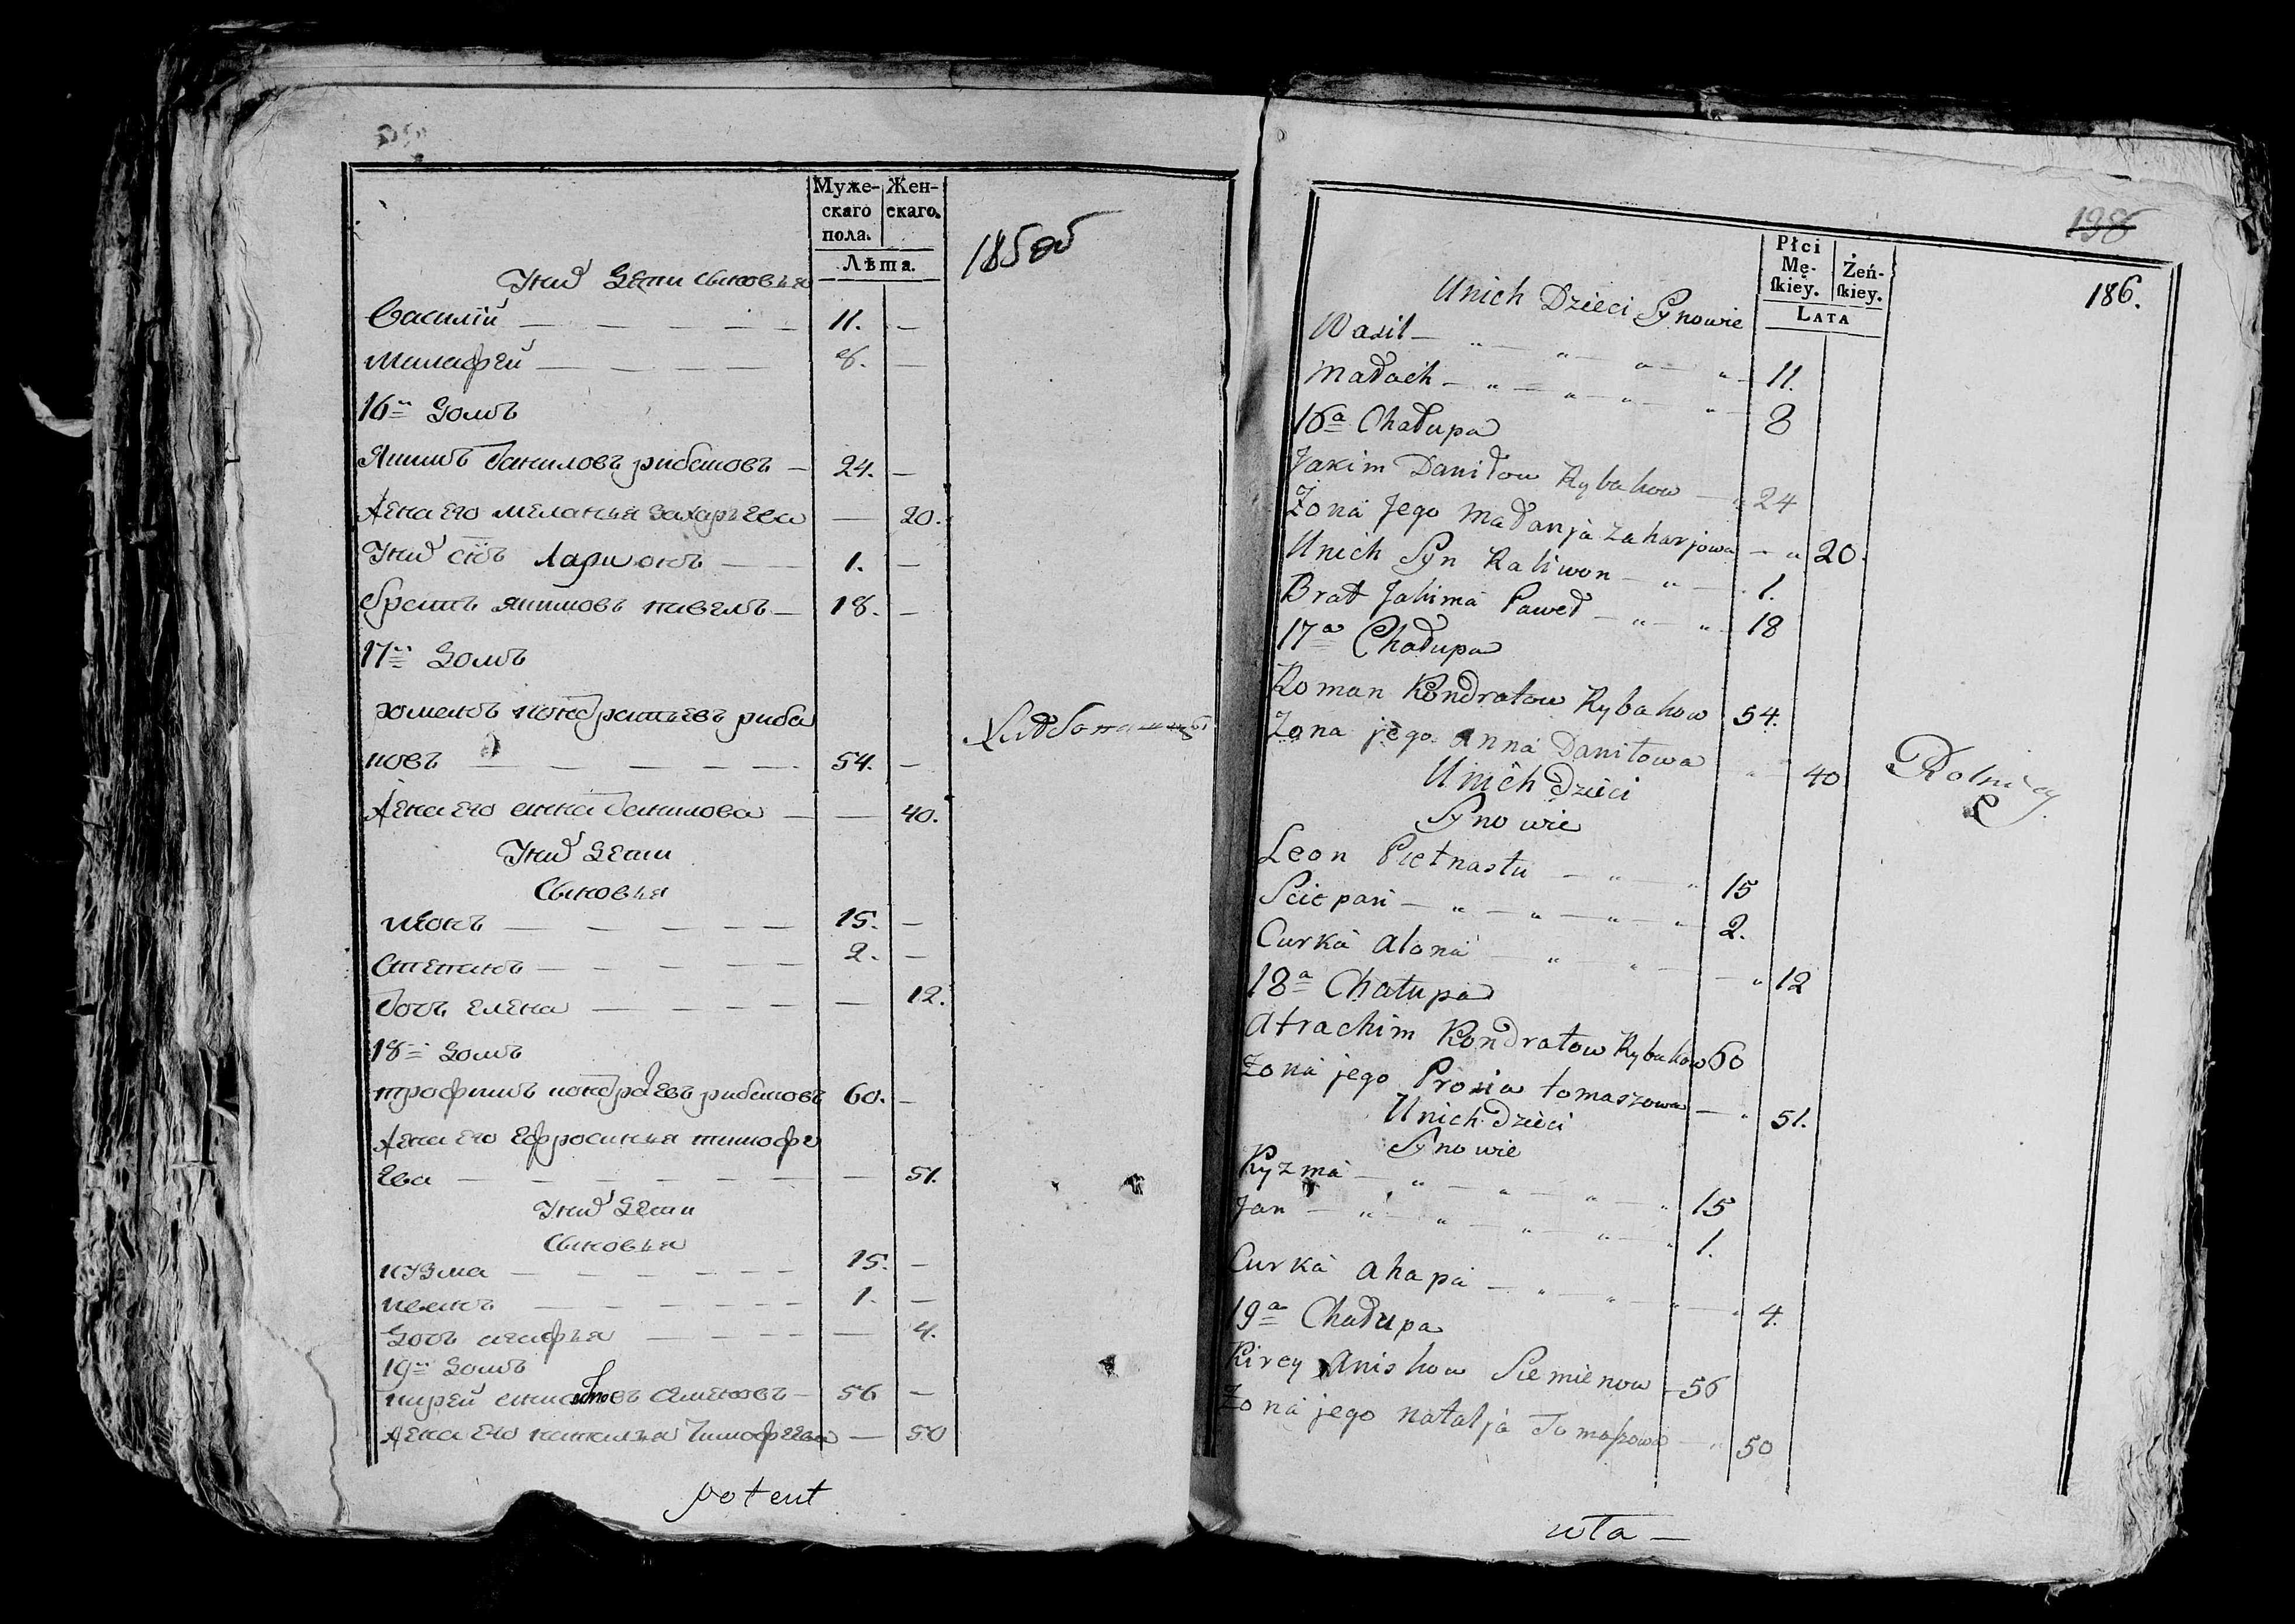 Муже-
скаго
пола.
Жен-
скаго.
Лѣта.
185 об
Унихъ Дети сыновья
Василій 11.
Малафей 8.
16й Домъ
Якимъ Даниловъ рибаковъ 24.
Жена его меланья Захарьева 20.
Унихъ сiнъ Ларионъ 1.
братъ якимовъ павелъ 18.
17й Домъ
романъ кондратьевъ риба
ковъ 54.
Хлебопашцы
Жена его анна Данилова 40.
Унихъ Дети
Сыновья
леонъ 15.
Степанъ 2.
дочь елена 12.
18й Домъ
трофимъ кондраевъ рибаковъ 60.
Жена его Ефросинья тимофе
ева 51.
Унихъ Дети
Сыновья
кузма 15.
иванъ 1.
Дочь агафья 4.
19й Домъ
кирей Семеновъ 56
Жена его наталья Тимофеева 50
potent
198
186.
Płci
Mę-
skiey.
Żeń-
skiey.
LATA
Unich Dzieci Synowie
Wasil 11.
Małach 8
16a Chałupa
Jakim Daniłow Rybakow 24
Żona Jego Małanja Zaharjowa 20.
Unich Syn Raliwon 1.
Brat Jakima Paweł 18
17a Chałupa
Roman Kondratow Rybakow 54.
Żona jego Anna Daniłowa 40
Rolnicy
Unich Dzieci
Synowie
Leon Pietnastu 15
Sciepan 2.
Curka Alona 12
18a Chałupa
Atrachim Kondratow Rybakow 60
Żona jego Prosia tomaszowa 51.
Unich Dzieci
Synowie
Kyzma 15
Jan 1.
Curka ahapa 4.
19a Chałupa
Kirey Aniskow Siemienow 56
Żona jego natalja Tomaszowa 50
wła